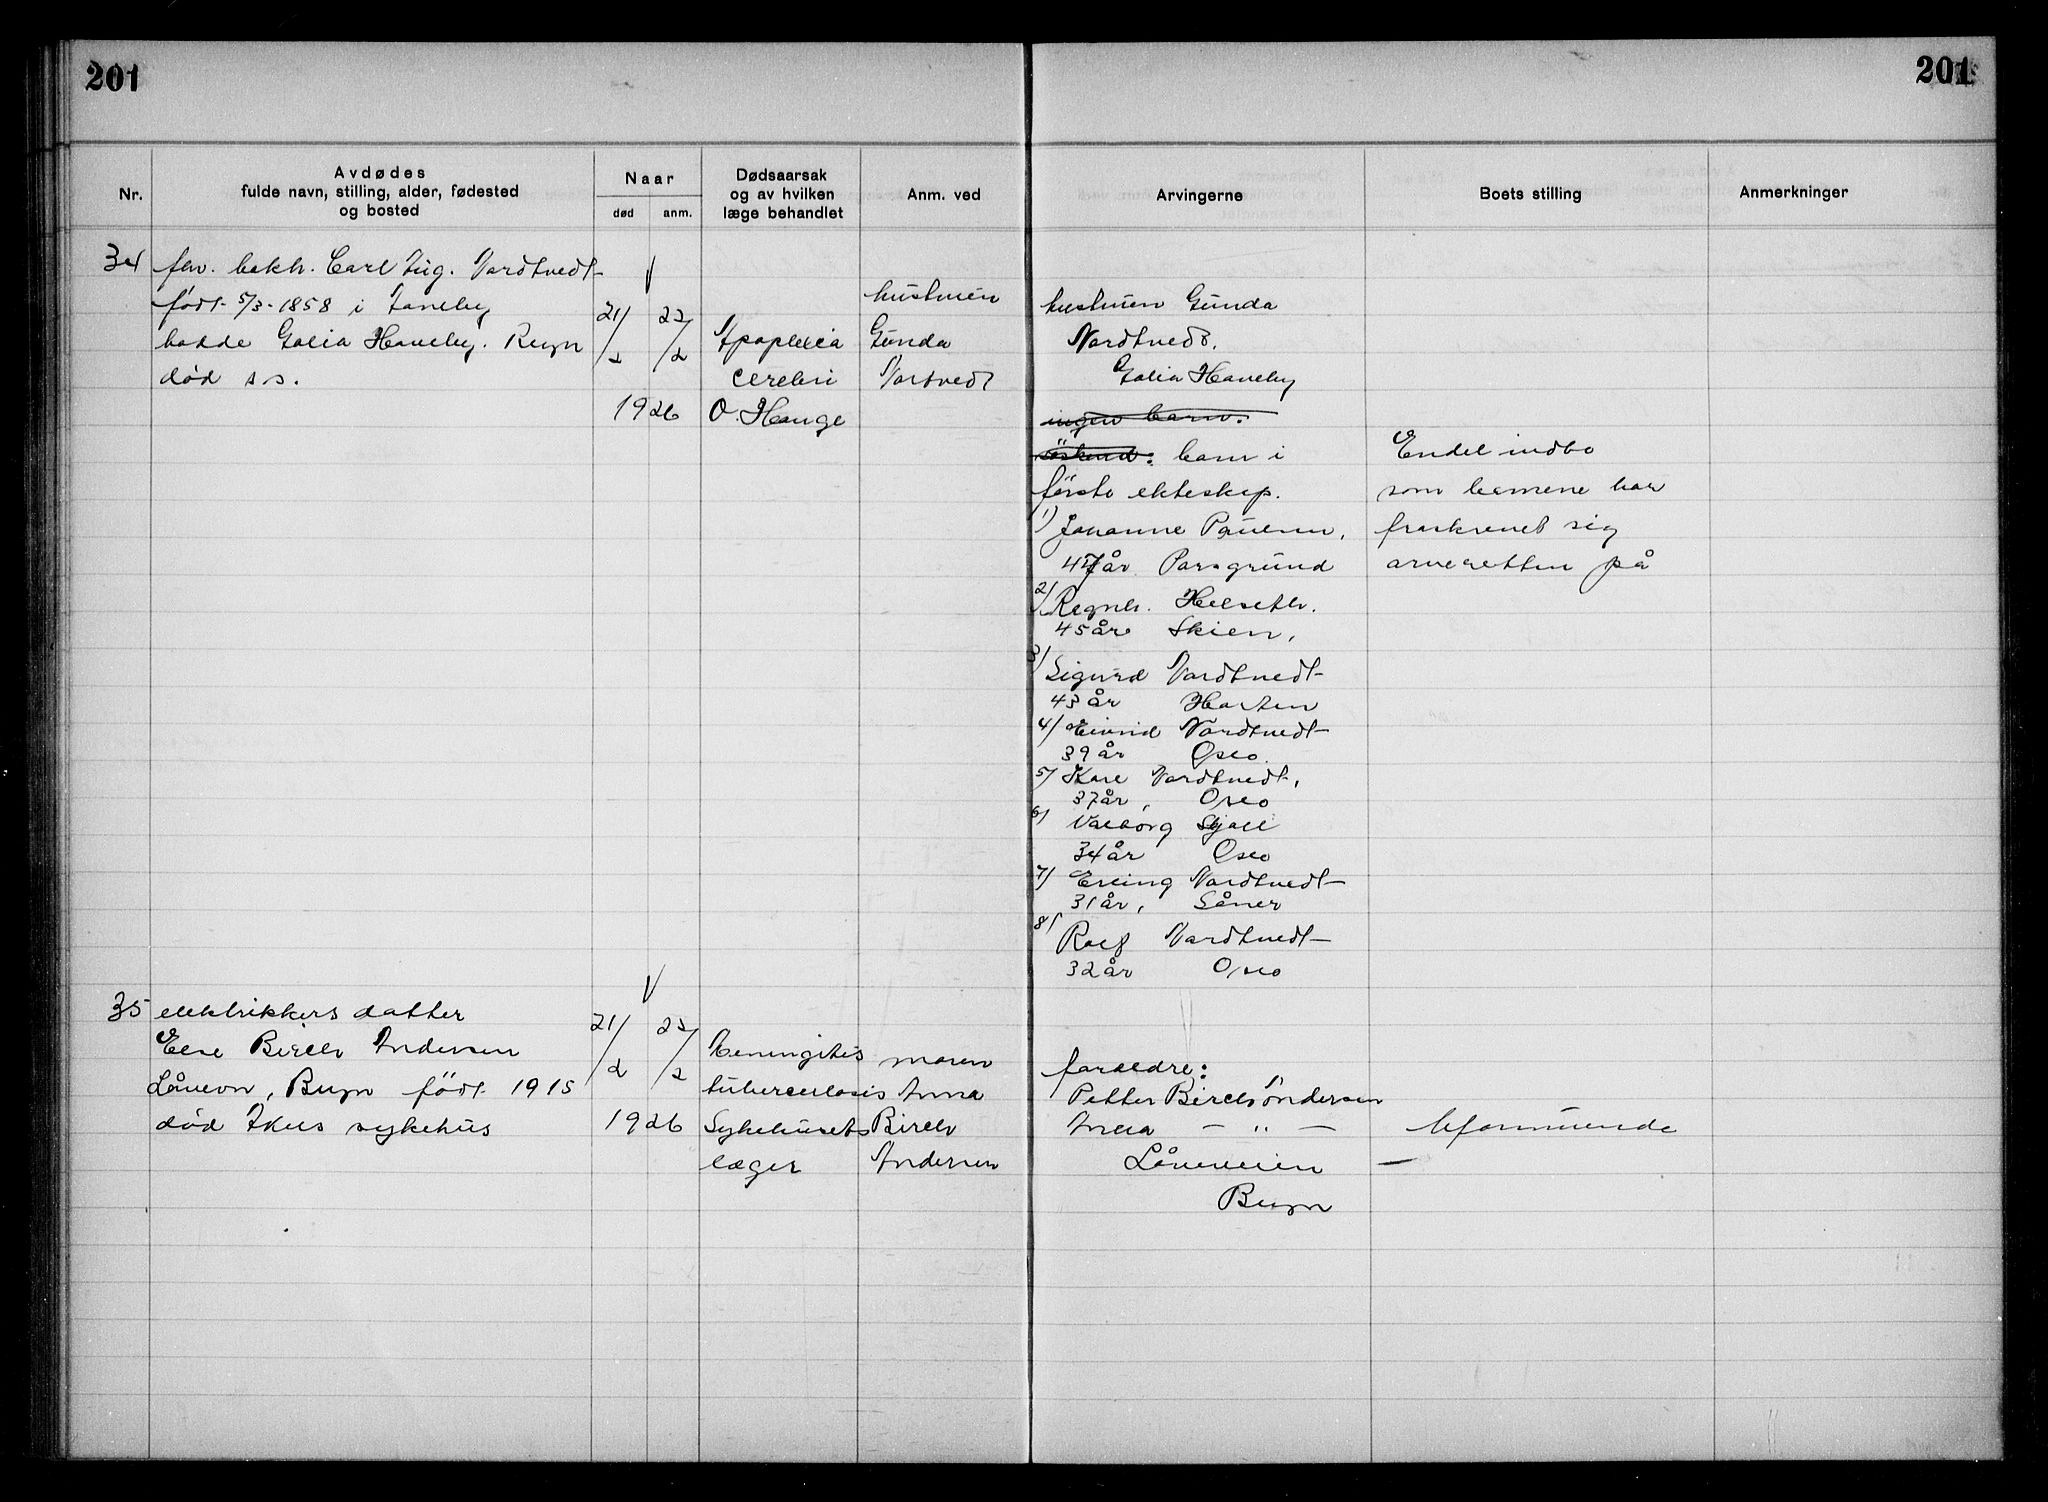 201
201
Nr.
Avdødes
fulde navn, stilling, alder, fødested
og bosted
Naar
død
anm.
Dødsaarsak
og av hvilken
læge behandlet
Anm. ved
Arvingerne
Boets stilling
Anmerkninger
34
fhv. Carl Aug. Nordtvedt
født 5/3-1858 i
bodde Golia Haneby.
død s.s.
21/2
22/2
1926
Apoplexia
cerebri
O. Hauge
hustruen
Gunda
Nordtvedt
hustruen Gunda
Nordtvedt.
Golia Haneby
ingen barn.
söskend: barn i
förste ekteskap.
1) Johanne
47 år Porsgrund
2/ Ragnh. Helseth.
45 år Skien,
3/ Sigurd Nordtvedt
43 år Horten
4/ Eivind Nordtvedt
39 år Oslo
5/ Kåre Nordtvedt,
37 år, Oslo
6/ Valborg
34 år Oslo
7/ Erling Nordtvedt
31 år, Såner
8/ Rolf Nordtvedt
32 år Oslo
Endel indbo
som barnene har
fraskrevet sig
arveretten på
35
elektrikkers datter
Else Birch Andersen
født 1915
död Akers sykehus
21/2
1926
Meningitis
tuberculosis
Sykehusets
læger
moren
Anna
Birch
Andersen
foreldre:
Petter Birch Andersen
Anna — " —
Låneveien
—